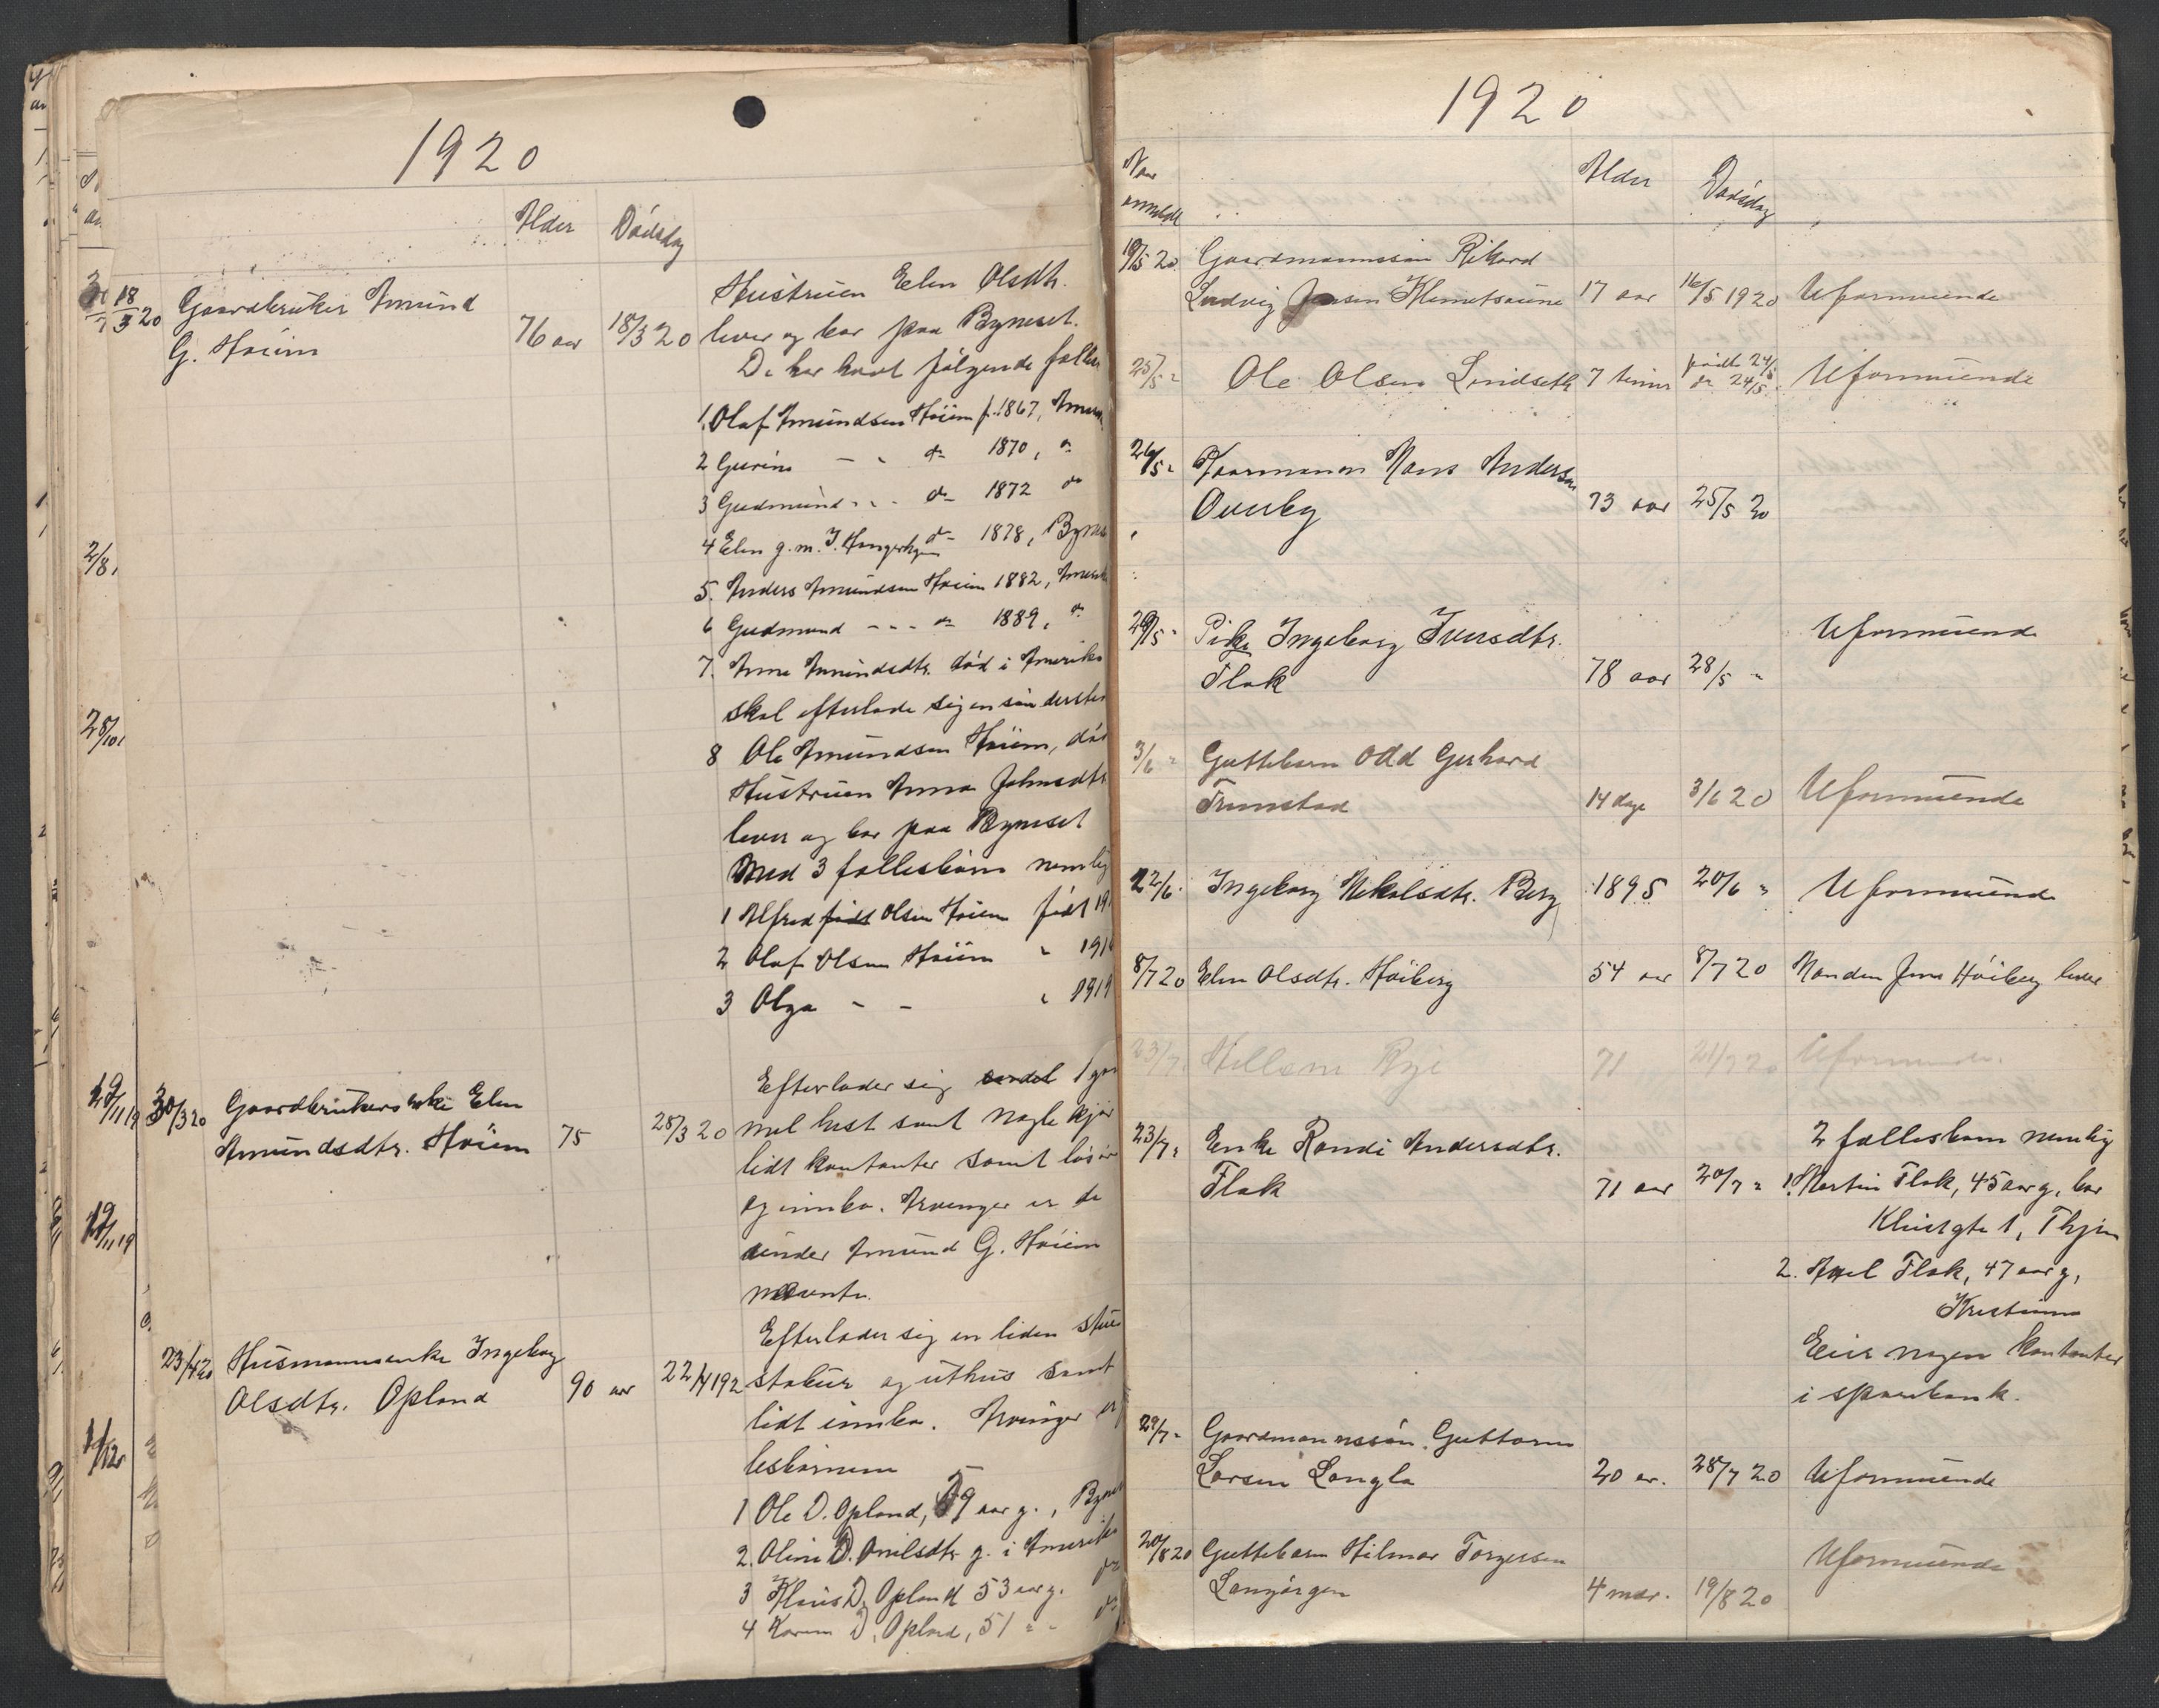 1920
Alder Dödsdag
18/3 20 Gaardbruker Amund
G. Höiem
76 aar 18/3 20
Hustruen Elen Olsdtr.
lever og bor paa Bynesset.
De har havt fölgende fælles
1. Olaf Amundsen Höiem f. 1867,
2 Gurine - - do 1870, do
3 Gudmund - - do 1872 do
4 Elen g. m. J. do 1878, Bynes
5. Anders Amundsen Höiem 1882,
6 Gudmund - - - do 1889, do
7. Anne Amundsdtr. död i Amerika
skal efterlade sig en sön dersteds
8 Ole Amundsen Höiem, död
Hustruen Anna Johnsdtr
lever og bor paa Bynesset
Med 3 fællesbörn nemlig
1 Alfred födt Olsen Höiem födt 19
2 Olaf Olsen Höiem " 191
3 Olga - - " 1919
30/3 20 Gaardbrukerenke Elen
Amundsdtr. Höiem 75 28/3 20
Efterlader sig en del 1 gam
mel hest samt nogle kjör
lidt kontanter samt lösöre
og innbo. Arvinger er de
under Amund G. Höiem
nevnte.
23/4 20 Husmannsenke Ingeborg
Olsdtr. Opland 90 aar 22/4 192
Efterlader sig en liden stue
stabur og uthus samt
lidt innbo. Arvinger er
lesbörnene
1 Ole D. Opland, 59 aar g., Bynes
2. Oline D. g. i Amerika
3 Klaus D. Opland 53 aar g. do
4 Karen D. Opland, 51 " - do
2/8
28/10
19/11 19
19/11 19
1920
Naar
anmeldt
Alder Dödsdag
19/5 20 Gaardmannssön Rikard
Ludvig Jensen Klemetsaune 17 aar 16/5 1920 Uformuende
25/5 " Ole Olsen Lindseth 7 timer födt 24/5
d. 24/5. Uformuende
26/5 " Kaarmann Hans Andersen
Overby 73 aar 25/5 20
29/5 " Pike Ingeborg Iversdtr.
Flak 78 aar 28/5 "
Uformuende
3/6 " Guttebarn Odd Gerhard
Trunstad 14 dage 3/6 20 Uformuende
22/6. Ingeborg Nekolsdtr. Berg 1895 20/6 " Uformuende
8/7 20 Elen Olsdtr. Höiberg 54 aar 8/7 20 Manden Jens Höiberg lever
23/7. Rye 71 21/7 20 Uformuende.
23/7 " Enke Randi Andersdtr.
Flak 71 aar 20/7 "
2 fællesbarn nemlig
1. Martin Flak, 45 aar g, bor
1, Thjem
2. Axel Flak, 47 aar g,
Kristiania
Eier nogen kontanter
i sparebank.
29/7 " Gaardmannssön Guttorm
Larsen Langla 20 ar. 28/7 20 Uformuende
20/8 20 Guttebarn Hilmar Torgersen
Langörgen 4 mdr. 19/8 20
Uformuende